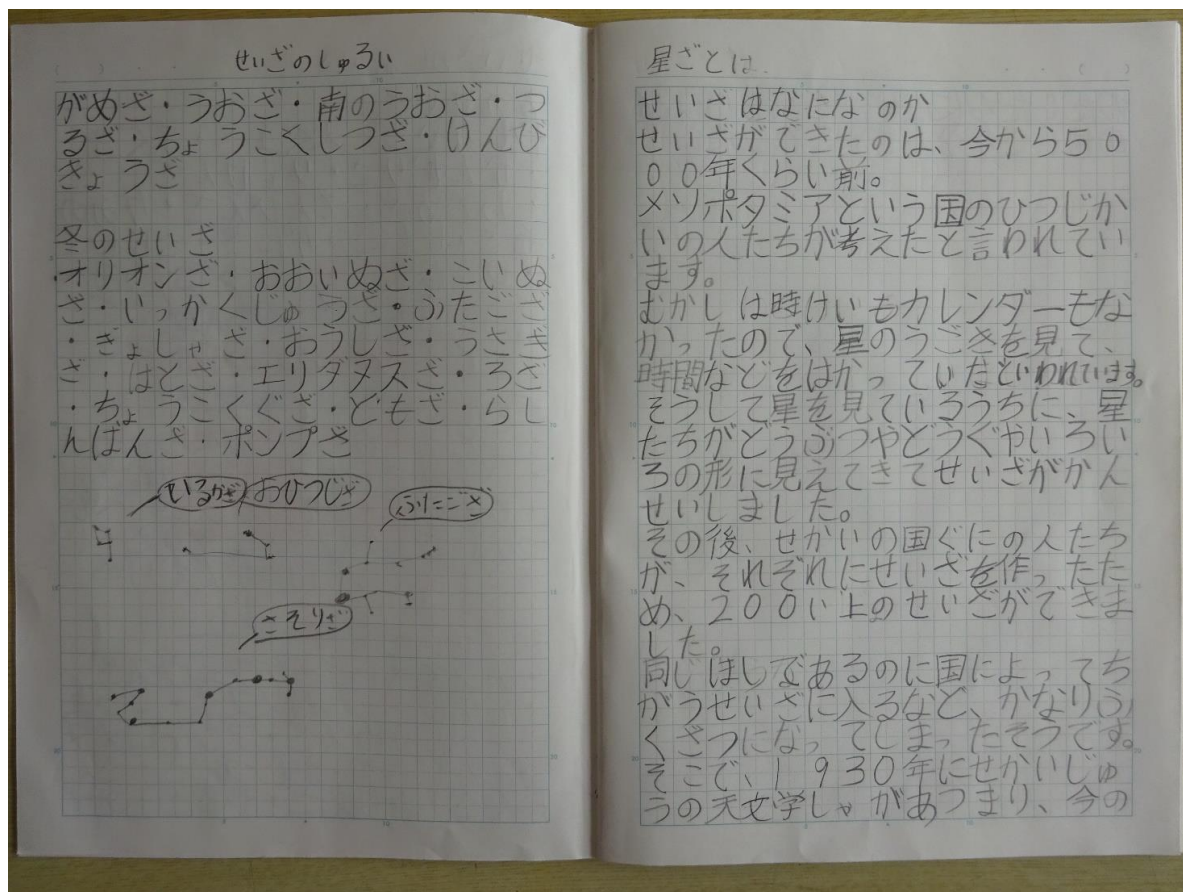 せいざのしゅるい
がめざ・うおざ・南のうおざ・つ
るざ・ちょうこくしつざ・けんび
きょうざ
冬のせいざ
・オリオンざ・おおいぬざ・こいぬ
ざ・いっかくじゅうざ・ふたござ
・ぎょしゃざ・おうしざ・うさぎ
ざ・はとざ・エリダヌスざ・ろざ
・ちょうこくぐざ・ともざ・らし
んばんざ・ポンプざ
いるかざ
おひつじざ
ふたござ
さそりざ
星ざとは
せいざはなになのか
せいざができたのは、今から50
00年くらい前。
メソポタミアという国のひつじか
いの人たちが考えたと言われてい
ます。
むかしは時けいもカレンダーもな
かったので、星のうごきを見て、
時間などをはかっていたといわれています。
そうして星を見ているうちに、星
たちがどうぶつやどうぐやいろい
ろの形に見えてきてせいざがかん
せいしました。
その後、せかいの国ぐにの人たち
が、それぞれにせいざを作ったた
め、200い上のせいざができま
した。
同じほしであるのに国によってち
がうせいざに入るなど、かなりふ
くざつになってしまったそうです。
そこで、1930年にせかいじゅ
うの天文学しゃがあつまり、今の